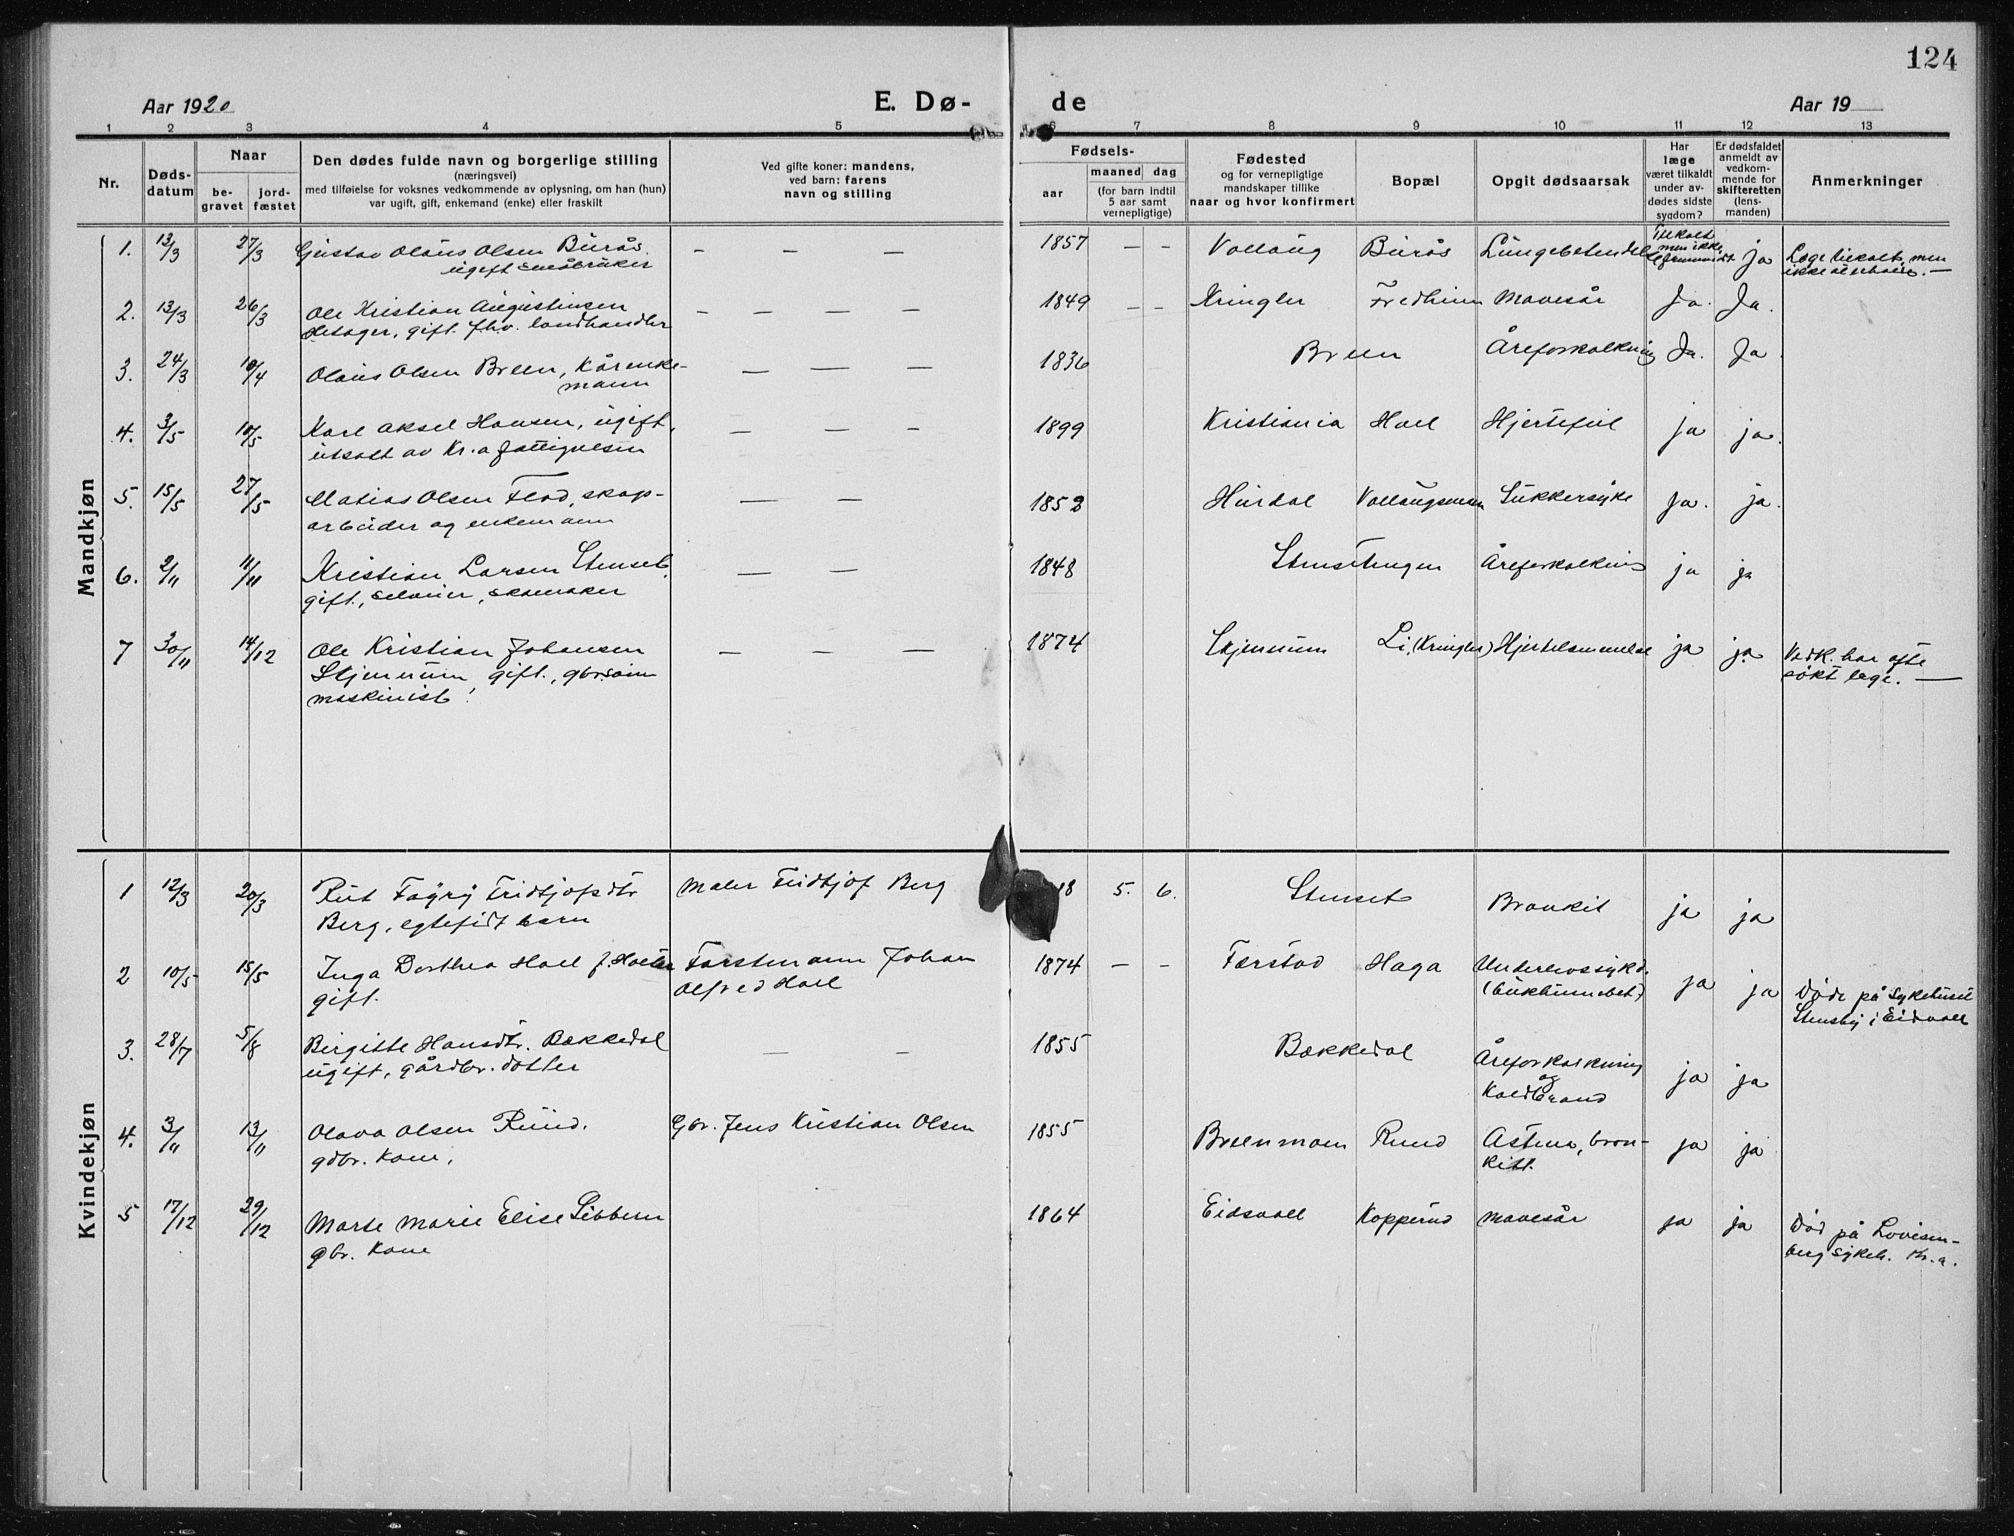 124
Aar 1920 E. Dø- de Aar 19
1 2 3 4 5 6 7 8 9 10 11 12 13
Nr.
Døds-
datum
Naar
be-
gravet
jord-
fæstet
Den dødes fulde navn og borgerlige stilling
(næringsvei)
med tilføielse for voksnes vedkommende av oplysning, om han (hun)
var ugift, gift, enkemand (enke) eller fraskilt
Ved gifte koner: mandens,
ved barn: farens
navn og stilling
Fødsels-
aar
maaned dag
(for barn indtil
5 aar samt
vernepligtige)
Fødested
og for vernepligtige
mandskaper tillike
naar og hvor konfirmert
Bopæl
Opgit dødsaarsak
Har
læge
været tilkaldt
under av-
dødes sidste
sygdom?
Er dødsfaldet
anmeldt av
vedkom-
mende for
skifteretten
(lens-
manden)
Anmerkninger
Mandkjøn
1. 13/3 27/3 Gustav Olaus Olsen Burås
ugift småbruker
— — — 1857 — — Vollaug Burås Lungebetendelse
Tilkalt
men ikke
ja
Læge tilkalt, men
ikke
2. 13/3 26/3 Ole Kristian Augustinsen
gift. fhv. landhandler
— — — — 1849 — — Kringler Fredheim Mavesår Ja. Ja.
3. 24/3 10/4 Olaus Olsen Breen, Kårenke-
mann
— — — 1836 Breen Åreforkalkning Ja. Ja
4. 3/5 10/5 Karl Aksel Hansen, ugift,
utsatt av Kr.a fattigvesen
— — — 1899 Kristiania Hoel Hjertefeil ja ja.
5. 15/5 27/5 Matias Olsen Flod, skogs-
arbeider og enkemann
— — 1852 Hurdal Vollaugsmoen Sukkersyke Ja. ja.
6. 2/11 11/11 Kristian Larsen Stenset,
gift, selveier, skomaker
— — 1848 Stensetengen Åreforkalkning ja ja
7 30/11 14/12 Ole Kristian Johansen
Skjennum gift., gbr. som
maskinist!
— — — 1874 Skjennum Li, (Kringler) Hjertelammelse ja ja
Vedk. har ofte
søkt læge. —
Kvindekjøn
1 12/3 20/3 Rut Fridtjofsdtr
Berg, egtefødt barn
Maler Fridtjof Berg
18 5. 6. Stenset Bronkit ja ja
2 10/5 15/5 Inga Dorthea Hoel f.
gift.
Forstmann Johan
Alfred Hoel
1874 — — Færstad Haga Underlivssykd.
(bukhinnebet.)
ja ja
Døde på Sykehuset
Stensby i Eidsvoll
3. 28/7 5/8 Birgitte Hansdtr. Bækkedal
ugift, gårdbr. dotter
— — 1855 Bækkedal Åreforkalkning
og
Koldbrand
ja ja
4. 3/11 13/11 Olava Olsen Ruud.
gdbr. kone,
Gbr. Jens Kristian Olsen
1855 Breenmoen Ruud Astma, bron-
kitt.
ja ja
5 17/12 29/12 Marte Marie Elise Sibbern
gbr. Kone
1864 Eidsvoll Kopperud Mavesår ja ja
Død på Lovisen-
berg Sykeh. Kr.a.